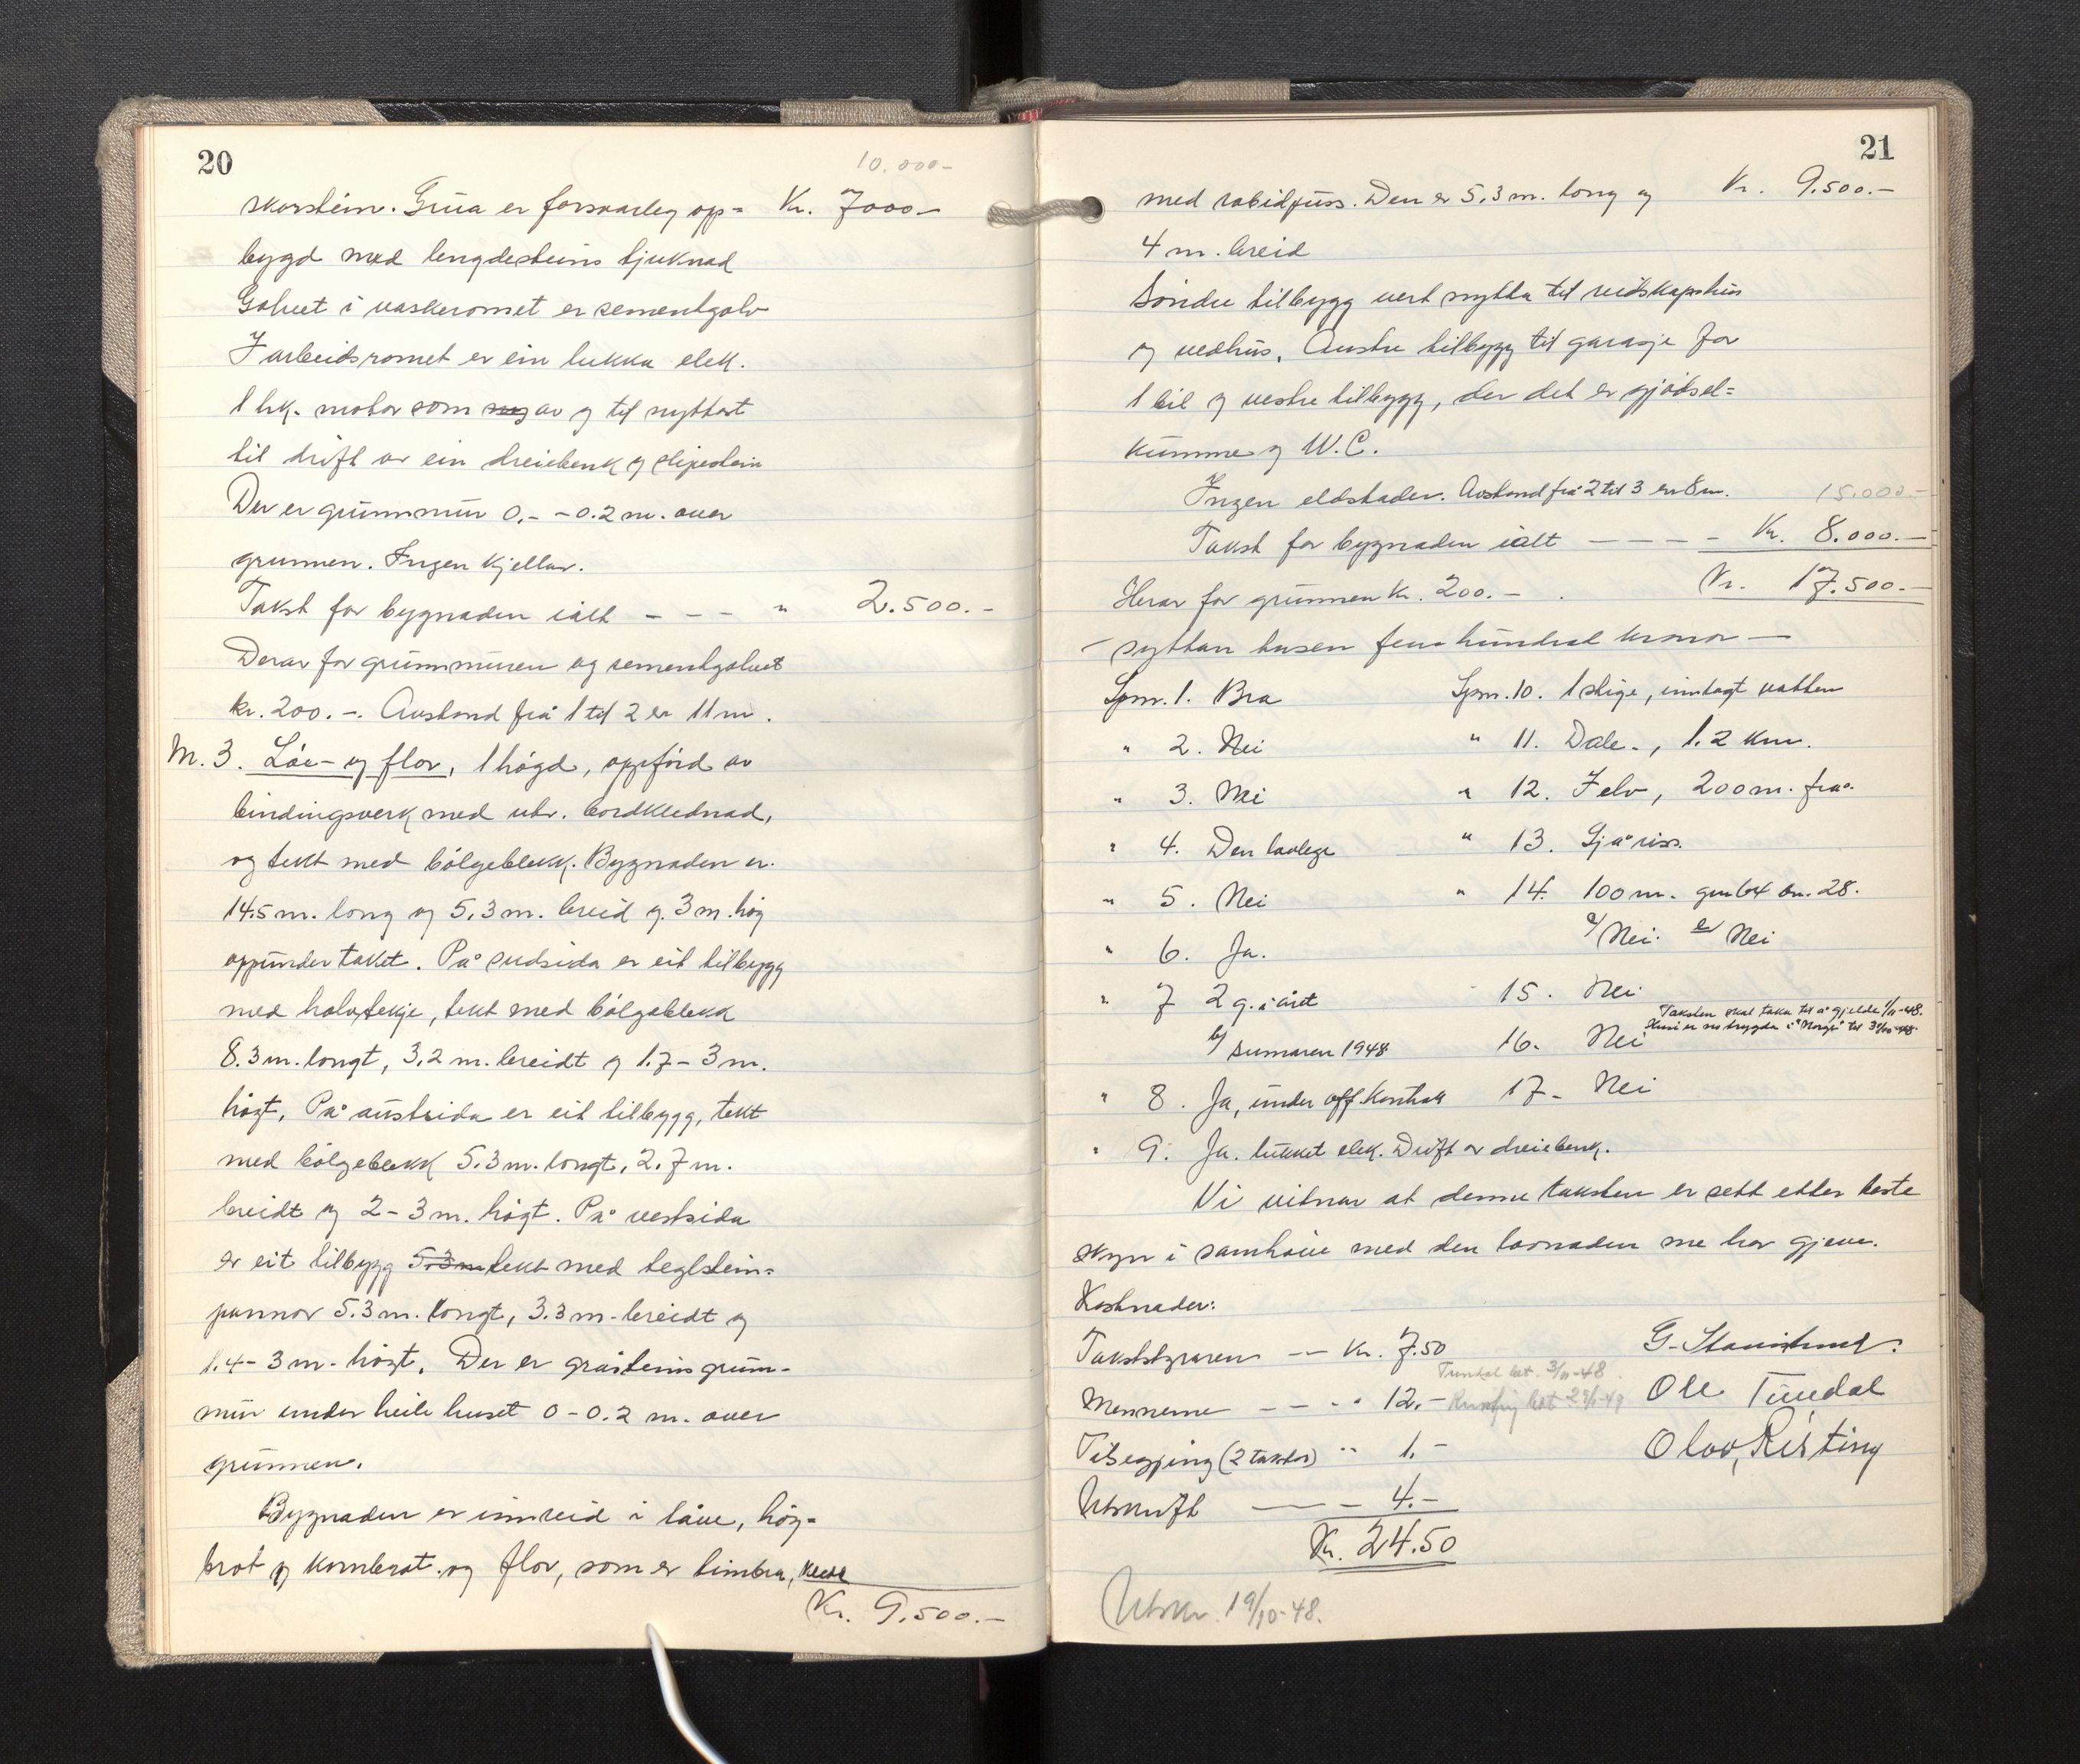 20
10.000-
skorstein. Grua er forsvarleg opp= Kr. 7000-
bygd med lengdesteins tjuknad
Golvet i vaskeromet er sementgolv
I arbeidsromet er ein lukka elek.
1 hk. motor som av og til nyttast
til drift av ein dreiebenk og slipestein
Der er grunnmur 0,- - 0.2 m. over
grunnen. Ingen kjellar.
Takst for bygnaden ialt - - - " 2.500.-
Derav for grunnmuren og sementgolvet
kr. 200.-. Avstand frå 1 til 2 er 11 m.
M. 3. Löe- og flor, 1 högd, oppförd av
bindingsverk med utv. bordklednad,
og tekt med bölgeblekk. Bygnaden er
14.5 m. long og 5.3 m. breid og 3 m. hög
oppunder taket. På sudsida er eit tilbygg
med halvtekje, tekt med bölgeblekk
8.3 m. longt, 3.2 m. breidt og 1.7 - 3 m.
högt. På austsida er eit tilbygg, tekt
med bölgeblekk 5.3 m. longt, 2.7 m.
breidt og 2 - 3 m. högt. På vestsida
er eit tilbygg 5.3 m tekt med teglstein=
pannor 5.3 m. longt, 3.3 m. breidt og
1.4 - 3 m. högt. Der er gråsteins grunn-
mur under heile huset 0 - 0.2 m. over
grunnen.
Bygnaden er innreid i låve, höy-
brot og kornbrot og flor, som er timbra,
Kr. 9.500.-
21
med rabidpuss. Den er 5.3 m. long og Kr. 9.500.-
4 m. breid
Söndre tilbygg vert nytta til reidskapshus
og vedhus. Austre tilbygg til garasje for
1 bil og vestre tilbygg, der det er gjödsel=
kumme og W.C.
Ingen eldstader. Avstand frå 2 til 3 er 8 m. 15.000.-
Takst for bygnaden ialt - - - - Kr. 8.000.-
Herav for grunnen kr. 200.- . Kr. 17.500.-
- syttan tusen fem hundrad kronor -
Spm. 1. Bra Spm. 10. 1 stige, innlagt vatten
" 2. Nei " 11. Dale., 1.2 km.
" 3. Nei " 12. Felv, 200 m. frå.
" 4. Den lovlege " 13. Sjå riss.
" 5. Nei " 14. 100 m. gnr 64 bn. 28.
" 6. Ja. a/ Nei. b/ Nei
" 7 2 g. i året 15. Nei
Taksten skal taka til å gjelde 1/11-48.
b/ sumaren 1948 16. Nei
" 8. Ja, under off. kontroll 17- Nei
" 9. Ja. lukket elek. Drift av dreiebenk.
Vi vitnar at denne taksten er sett etter beste
skyn i samhöve med den lovnaden me har gjeve.
Kostnader:
Takststyraren -- Kr. 7.50
Tundal bet. 3/11-48
Mennerne - - - " 12.- Ole Tundal
Tilsegjing (2 takstar) " 1.- Olav Risting
Utskrift - - - 4.-
Kr. 24.50
Utskr. 19/10-48.